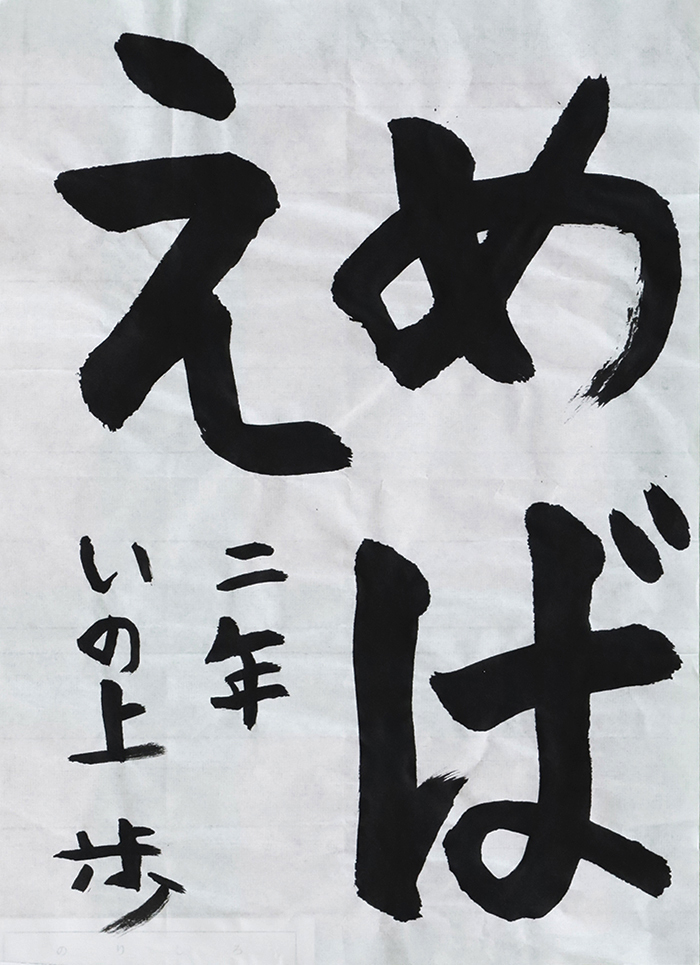 めば
え
二年
いの上 歩